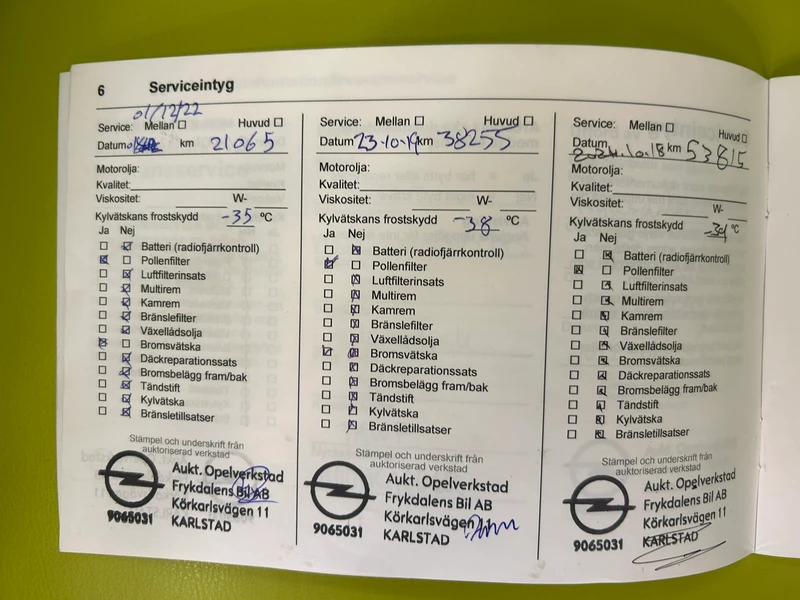 6 Serviceintyg
01/12/22
Service: Mellan ☐ Huvud ☐
Datum km 21065
Motorolja:
Kvalitet:
Viskositet: W-
Kylvätskans frostskydd -35 °C
Ja Nej
Batteri (radiofjärrkontroll)
Pollenfilter
Luftfilterinsats
Multirem
Kamrem
Bränslefilter
Växellådsolja
Bromsvätska
Däckreparationssats
Bromsbelägg fram/bak
Tändstift
Kylvätska
Bränsletillsatser
Stämpel och underskrift från
auktoriserad verkstad
Aukt. Opelverkstad
Frykdalens Bil AB
Körkarlsvägen 11
9065031 KARLSTAD
Service: Mellan ☐ Huvud ☐
Datum 23-10-19 km 38255
Motorolja:
Kvalitet:
Viskositet: W-
Kylvätskans frostskydd -38 °C
Ja Nej
Batteri (radiofjärrkontroll)
Pollenfilter
Luftfilterinsats
Multirem
Kamrem
Bränslefilter
Växellådsolja
Bromsvätska
Däckreparationssats
Bromsbelägg fram/bak
Tändstift
Kylvätska
Bränsletillsatser
Stämpel och underskrift från
auktoriserad verkstad
Aukt. Opelverkstad
Frykdalens Bil AB
Körkarlsvägen 11
9065031 KARLSTAD
Service: Mellan ☐ Huvud ☐
Datum 2024.10.18 km 53815
Motorolja:
Kvalitet:
Viskositet: W-
Kylvätskans frostskydd °C
Ja Nej
Batteri (radiofjärrkontroll)
Pollenfilter
Luftfilterinsats
Multirem
Kamrem
Bränslefilter
Växellådsolja
Bromsvätska
Däckreparationssats
Bromsbelägg fram/bak
Tändstift
Kylvätska
Bränsletillsatser
Stämpel och underskrift från
auktoriserad verkstad
Aukt. Opelverkstad
Frykdalens Bil AB
Körkarlsvägen 11
9065031 KARLSTAD